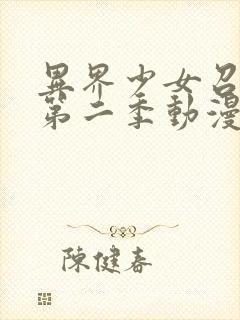 異界少女召
第二季動漫
陳健春